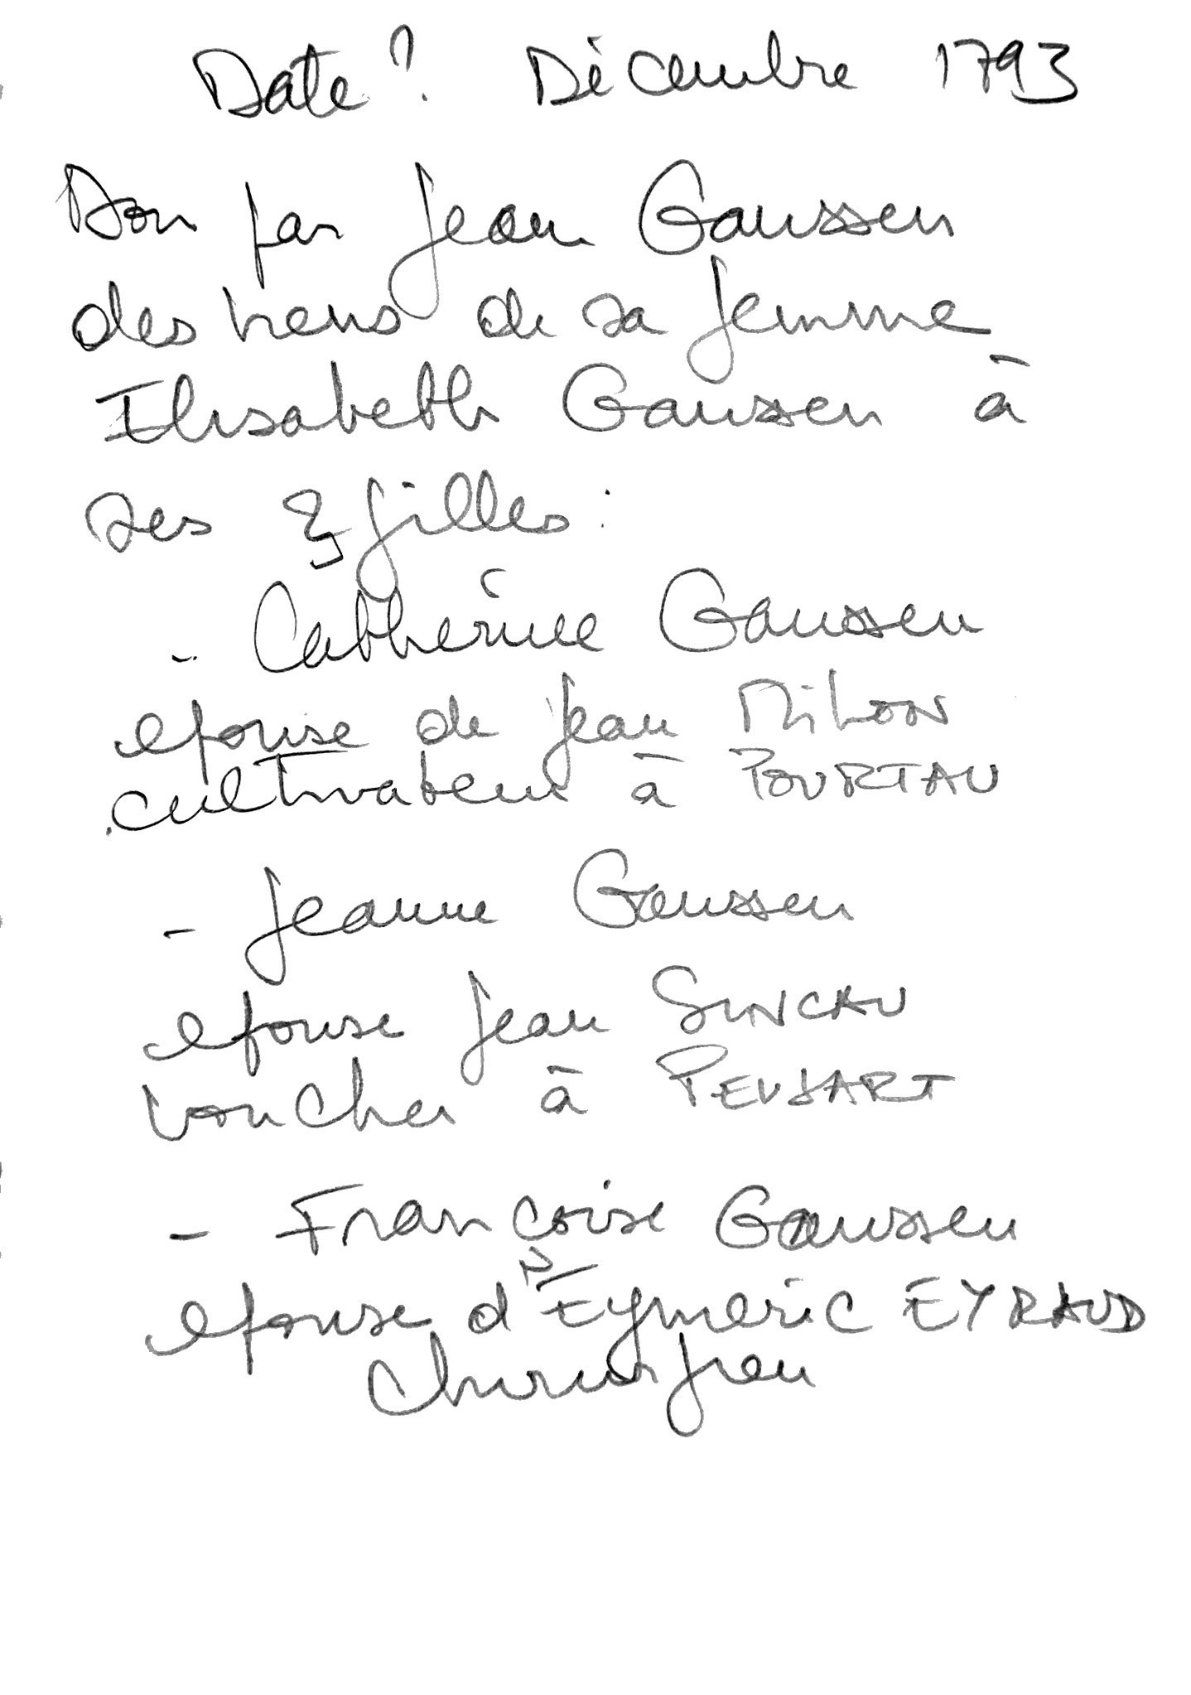 Date ? Décembre 1793
Don par Jean Gaussen
des biens de sa femme
Elisabeth Gaussen à
ses 3 filles :
- Catherine Gaussen
epouse de Jean Milon
cultivateur à POURTAU
- Jeanne Gaussen
epouse Jean
à
- Françoise Gaussen
epouse d'Eymeric EYRAUD
chirurgien